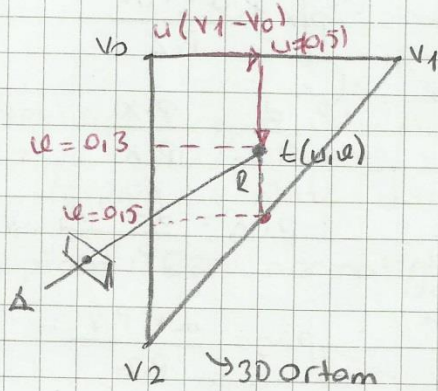 u(V1-V0)
V0
u=0,5)
V1
v=0,3
t(u,v)
R
v=0,5
V2
→3D Ortam